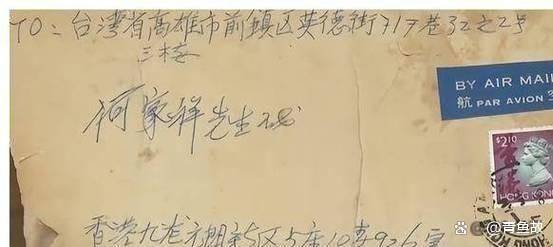 TO：台湾省高雄市前鎮区英德街717巷32之2号
三楼
何家祥先生收
BY AIR MAIL
航 PAR AVION 空
$2.10
HONG KONG
香港九龙
5区5座10楼926室
百家号/青鱼故